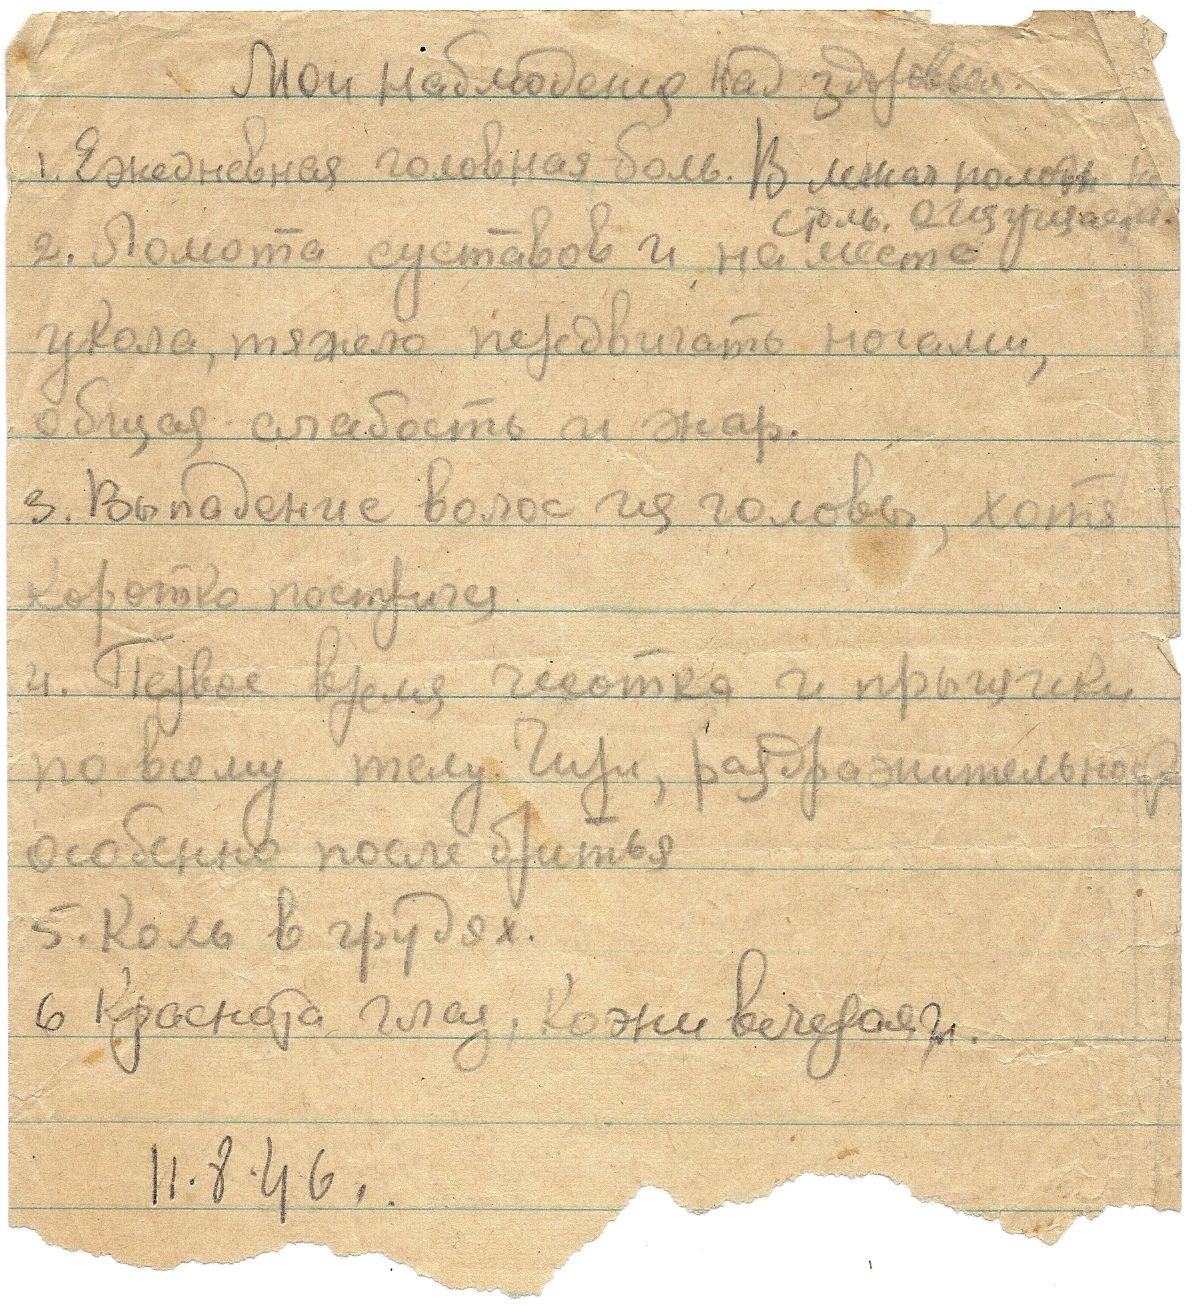 Мои наблюдения над здоровьем.
1. Ежедневная головная боль. В лежач положен не
столь. ощущаем.
2. Ломота суставов и на месте
укола, тяжело передвигать ногами,
общая слабость и жар.
3. Выпадение волос из головы, хотя
коротко постригся
4. Первое время чесотка и прыщики
по всему телу. раздражительност
особенно после бритья
5. Коль в грудях.
6 Краснота глаз, кожи вечерами.
11.8.46.